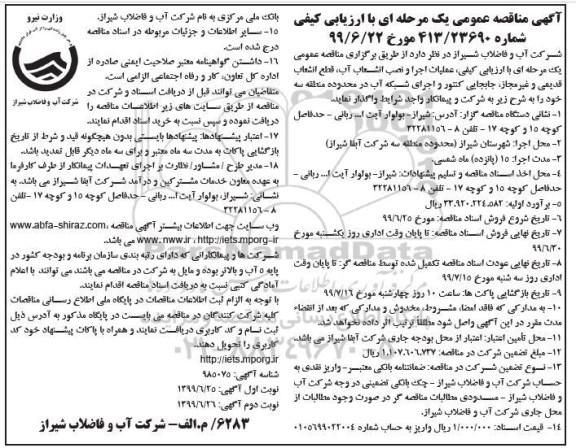 آگهی مناقصه عمومی یک مرحله ای با ارزیابی کیفی
شماره ۴۱۳/۲۳۶۹۰ مورخ ۹۹/۶/۲۲
شرکت آب و فاضلاب شیراز در نظر دارد از طریق برگزاری مناقصه عمومی
یک مرحله ای با ارزیابی کیفی، عملیات اجرا و نصب انشعاب آب، قطع انشعاب
قدیمی و غیرمجاز، جابجایی کنتور و اجرای شبکه آب در محدوده منطقه سه
خود را به شرح زیر به شرکت و پیمانکار واجد شرایط واگذار نماید.
۱- نشانی دستگاه مناقصه گزار: آدرس: شیراز- بولوار آیت ا... ربانی - حدفاصل
کوچه ۱۵ و کوچه ۱۷ - تلفن ۸ - ۳۲۲۸۱۱۵۶
۲- محل اجرا: شهرستان شیراز (محدوده منطقه سه شرکت آبفا شیراز)
۳- مدت اجرا: ۱۵ (پانزده) ماه شمسی.
۴- محل اخذ اسناد مناقصه و تسلیم پیشنهادات: شیراز- بولوار آیت ا... ربانی -
حدفاصل کوچه ۱۵ و کوچه ۱۷ - تلفن ۸ - ۳۲۲۸۱۱۵۶
۵- برآورد اولیه: ۲۳،۹۲۰،۲۲۴،۵۸۲ ریال
۶- تاریخ شروع فروش اسناد مناقصه: مورخ ۹۹/۶/۲۵
۷- تاریخ نهایی فروش اسناد مناقصه: تا پایان وقت اداری روز یکشنبه مورخ
۹۹/۶/۳۰
۸- تاریخ نهایی عودت اسناد مناقصه تکمیل شده توسط مناقصه گر: تا پایان وقت
اداری روز سه شنبه مورخ ۹۹/۷/۱۵
۹- تاریخ بازگشایی پاکت ها: ساعت ۱۰ روز چهارشنبه مورخ ۹۹/۷/۱۶
۱۰- به مدارکی که فاقد امضا، مشروط، مخدوش و مدارکی که بعد از انقضاء
مدت مقرر در این آگهی واصل شود مطلقاً ترتیب اثر داده نخواهد شد.
۱۱- محل تأمین اعتبار: اعتبار از محل بودجه جاری شرکت آبفا شیراز می باشد.
۱۲- مبلغ تضمین شرکت در مناقصه: ۱،۱۰۷،۶۰۶،۷۳۷ ریال
۱۳- نوع تضمین شرکت در مناقصه: ضمانتنامه بانکی معتبر- واریز نقدی به
حساب شرکت آب و فاضلاب شیراز - چک بانکی تضمینی در وجه شرکت آب
و فاضلاب شیراز - مسدودی مطالبات مناقصه گر در صورت وجود مطالبات از
محل جاری شرکت آب و فاضلاب شیراز.
۱۴- قیمت اسناد: ۱/۰۰۰/۰۰۰ ریال واریز به حساب شماره ۰۱۰۵۶۹۹۰۲۲۰۰۴
بانک ملی مرکزی به نام شرکت آب و فاضلاب شیراز.
۱۵- سایر اطلاعات و جزئیات مربوطه در اسناد مناقصه
درج شده است.
۱۶- داشتن گواهینامه معتبر صلاحیت ایمنی صادره از
اداره کل تعاون، کار و رفاه اجتماعی الزامی است.
متقاضیان می توانند قبل از دریافت اسناد و شرکت در
مناقصه از طریق سایت های زیر اطلاعات مناقصه را
دریافت نموده و سپس نسبت به خرید اسناد اقدام نمایند.
وزارت نیرو
شرکت آب و فاضلاب شیراز
۱۷- اعتبار پیشنهادها: پیشنهادها بایستی بدون هیچگونه قید و شرط از تاریخ
بازگشایی پاکات به مدت سه ماه معتبر و برای سه ماه دیگر قابل تمدید باشد.
۱۸- مدیر طرح / مشاور/ نظارت بر اجرای تعهدات پیمانکار از طرف کارفرما
به عهده معاون خدمات مشترکین و درآمد شرکت آبفا شیراز می باشد. به
نشانی: شیراز، بولوار آیت ا... ربانی - حدفاصل کوچه ۱۵ و کوچه ۱۷ - تلفن
۸ - ۳۲۲۸۱۱۵۶
وب سایت جهت اطلاعات بیشتر آگهی مناقصه www.abfa-shiraz.com،
http://iets.mporg-ir ، www.nww.ir می باشد.
شرکت ها و پیمانکارانی که دارای رتبه بندی سازمان برنامه و بودجه کشور در
پایه ۵ آب و بالاتر بوده و مایل به شرکت در مناقصه می باشند می توانند با اعلام
آمادگی کتبی نسبت به دریافت اسناد مناقصه اقدام نمایند.
با توجه به الزام ثبت اطلاعات مناقصات در پایگاه ملی اطلاع رسانی مناقصات
کلیه شرکت کنندگان در مناقصه می بایست در پایگاه مذکور به آدرس ذیل
ثبت نام و کد کاربری دریافت نمایند و همراه با پاکات پیشنهاد خود کد
کاربری را تحویل دهند.
http://iets.mporg.ir
شناسه آگهی: ۹۸۵۰۷۵
نوبت اول آگهی: ۱۳۹۹/۶/۲۵
نوبت دوم آگهی: ۱۳۹۹/۶/۲۶
۶۲۸۳/ م.الف- شرکت آب و فاضلاب شیراز